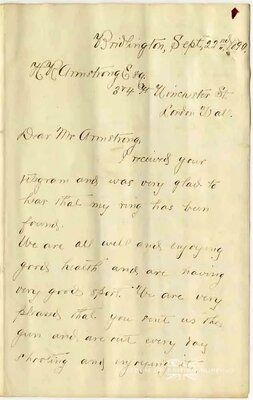 Bridlington, Sept, 22nd, 1890.
H. H. Armstrong Esq.
374 Winchester St
London
Dear Mr Armstrong,
I received your
telegram and was very glad to
hear that my ring has been
found.
We are all well and enjoying
good health and are having
very good sport. We are very
pleased that you sent us the
gun and are out every day
shooting and enjoying